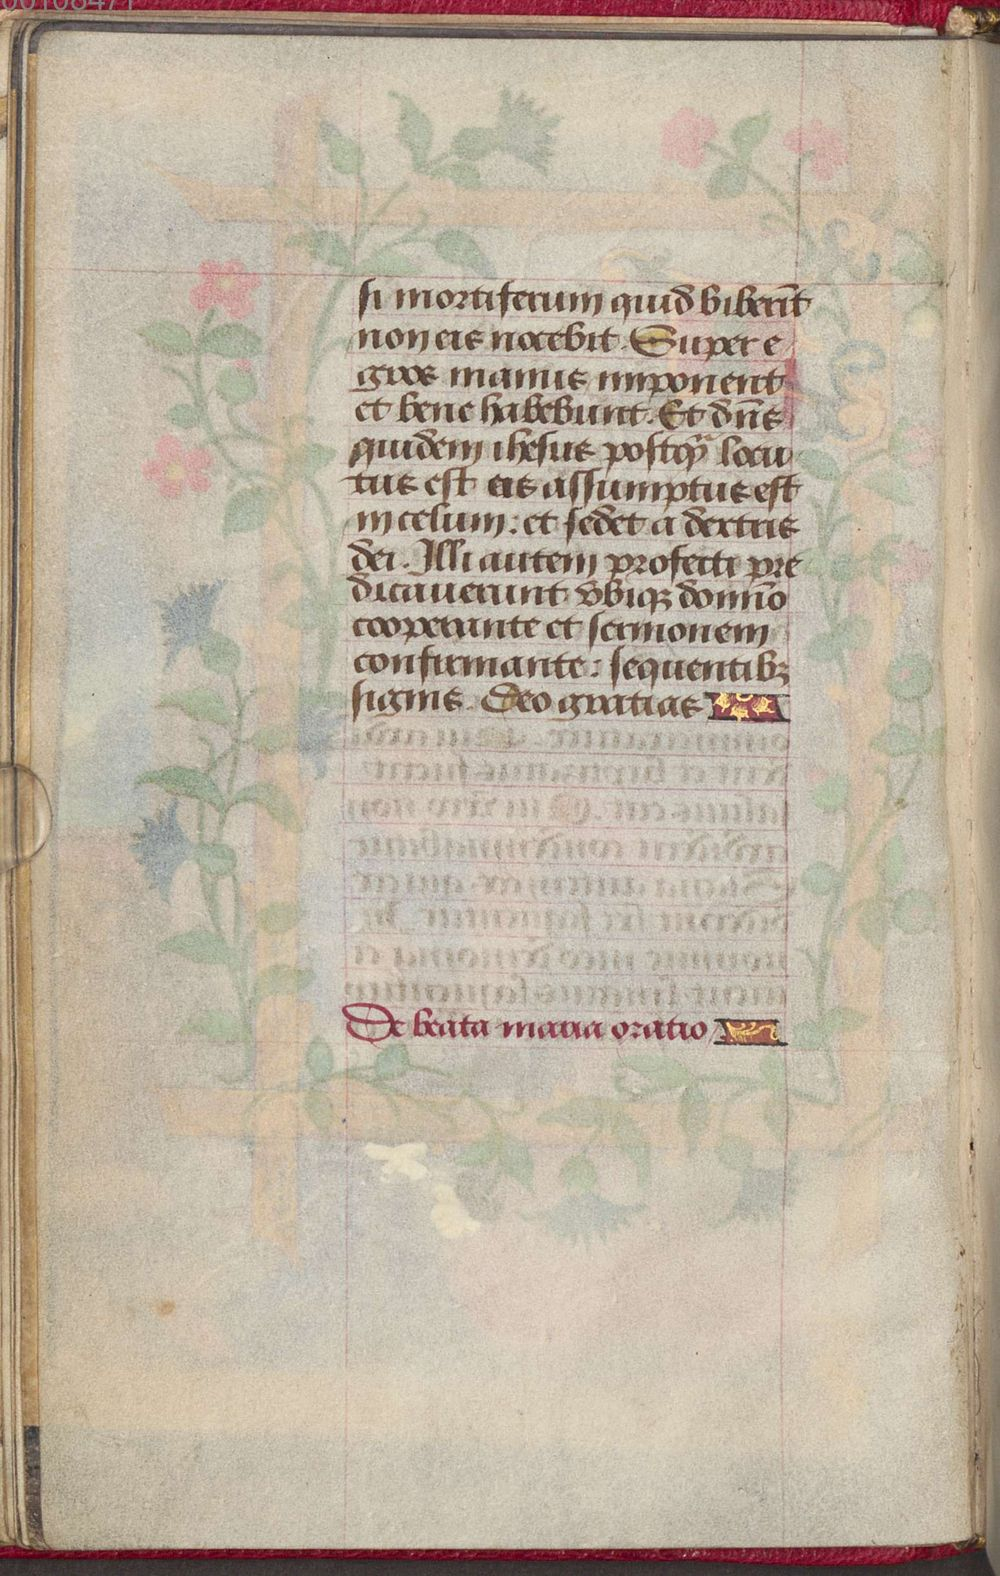 si mortiferum quid biberīt
non eis nocebit. Super e
gros manus imponent
et bene habebunt. Et dn̄s
quidem ihesus postq̄ȝ locu
tus est eis assumptus est
in celum: et sedet a dextris
dei. Illi autem profecti pre
dicauerunt vbiqȝ domīo
cooperante et sermonem
confirmante: sequentibȝ
signis. Deo gratias
De beata maria oratio